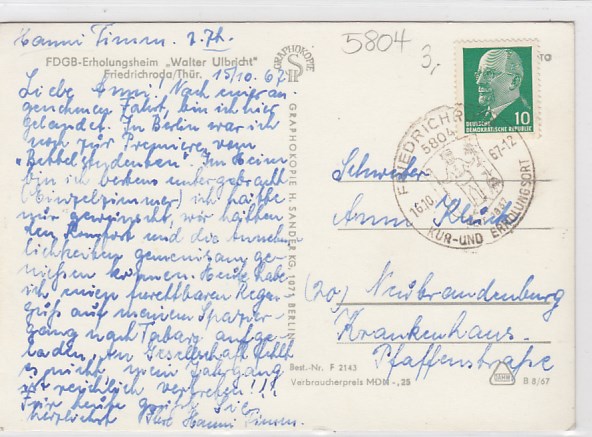 Hanni Timm. z. Zt.
5804
3,
FDGB-Erholungsheim „Walter Ulbricht"
Friedrichroda/Thür. 15/10. 67
Liebe Anni! Nach einer an-
genehmen Fahrt, bin ich hier
gelandet. In Berlin war ich
noch zur Premiere vom
„Bettelstudenten". Im Heim
bin ich bestens untergebracht
(Einzelzimmer) ich hätte
nur gewünscht, wir hätten
den Komfort und die Annehm-
lichkeiten gemeinsam ge-
nießen können. Heute habe
ich, einen furchtbaren Regen-
guß auf meinem Spazier-
gang nach Tabarz aufge-
laden, An Gesellschaft fehlt
es nicht, mein Jahrgang
ist reichlich vertreten!!!
Für heute grüßt Sie
herzlichst Ihre Hanni Timm.
GRAPHOKOPIE
GRAPHOKOPIE H. SANDER KG, 1071 BERLIN
DEUTSCHE
DEMOKRATISCHE REPUBLIK
10
FRIEDRICHR
5804
16.10. 67-12
KUR- UND ERHOLUNGSORT
Schwester
Anni
(20) Neubrandenburg
Krankenhaus.
Pfaffenstraße
Best.-Nr. F 2143
Verbraucherpreis MDN -,25
B 8/67